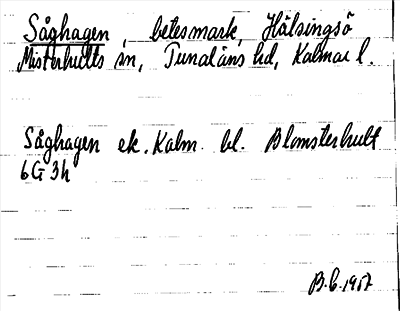 Såghagen, betesmark, Hälsingsö
Misterhults sn, Tunaläns hd, Kalmar l.
Såghagen ek. Kalm. bl. Blomsterhult
6G 3h
B.C. 1957